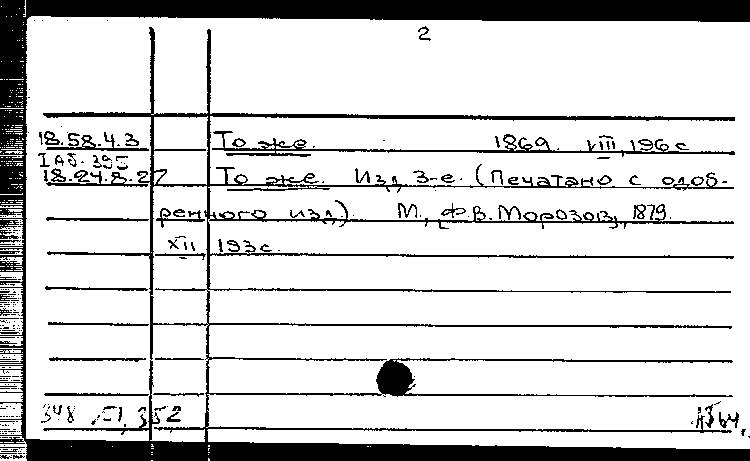 2
18.58.4.3 То же. 1869. VIII, 196 с
I Аб. 395
18.24.8.27 То же. Изд. 3-е. (Печатано с одоб-
ренного изд.). М., [Ф.В. Морозов], 1879.
XII, 193 с.
348 352